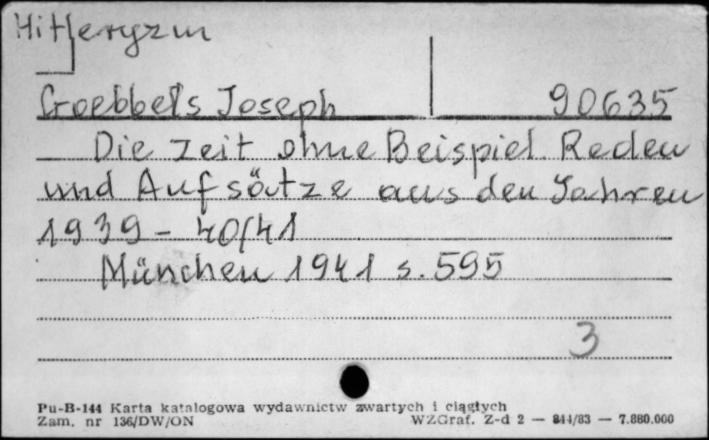 Hitleryzm
Goebbels Joseph 90635
Die Zeit ohne Beispiel. Reden
und Aufsätze aus den Jahren
1939 - 40/41
München 1941 s. 595
3
Pu-B-144 Karta katalogowa wydawnictw zwartych i ciągłych
Zam. nr 136/DW/ON WZGraf. Z-d 2 — 844/83 — 7.880.000